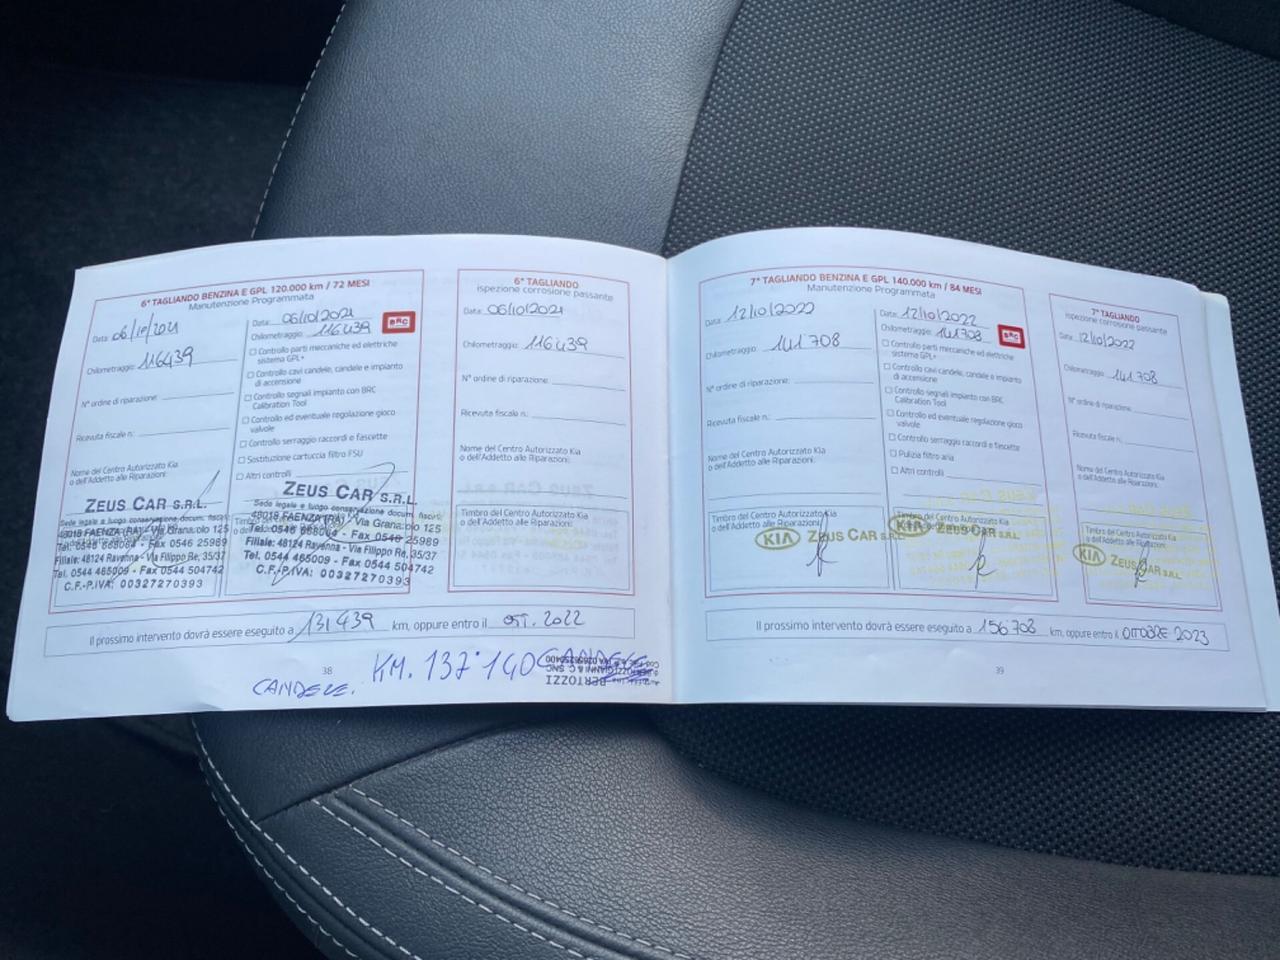 6° TAGLIANDO BENZINA E GPL 120.000 km / 72 MESI
Manutenzione Programmata
Data: 06/10/2021
Chilometraggio: 116439
N° ordine di riparazione:
Ricevuta fiscale n.:
Nome del Centro Autorizzato Kia
o dell'Addetto alle Riparazioni:
ZEUS CAR S.R.L.
Sede legale e luogo conservazione docum. fiscali:
48018 FAENZA (RA) - Via Granarolo 125
Tel. 0546 668064 - Fax 0546 25989
Filiale: 48124 Ravenna - Via Filippo Re, 35/37
Tel. 0544 465009 - Fax 0544 504742
C.F.-P.IVA: 00327270393
Data: 06/10/2021
Chilometraggio: 116439
BRC
Controllo parti meccaniche ed elettriche
sistema GPL+
Controllo cavi candele, candele e impianto
di accensione
Controllo segnali impianto con BRC
Calibration Tool
Controllo ed eventuale regolazione gioco
valvole
Controllo serraggio raccordi e fascette
Sostituzione cartuccia filtro FSU
Altri controlli
ZEUS CAR S.R.L.
Sede legale e luogo conservazione docum. fiscali:
48018 FAENZA (RA) - Via Granarolo 125
Tel. 0546 668064 - Fax 0546 25989
Filiale: 48124 Ravenna - Via Filippo Re, 35/37
Tel. 0544 465009 - Fax 0544 504742
C.F.-P.IVA: 00327270393
6° TAGLIANDO
ispezione corrosione passante
Data: 06/10/2021
Chilometraggio: 116439
N° ordine di riparazione:
Ricevuta fiscale n.:
Nome del Centro Autorizzato Kia
o dell'Addetto alle Riparazioni:
Timbro del Centro Autorizzato Kia
o dell'Addetto alle Riparazioni:
Il prossimo intervento dovrà essere eseguito a 131439 km, oppure entro il OTT. 2022
38
CANDELE. KM. 137'140 CANDELE
BERTOZZI
7° TAGLIANDO BENZINA E GPL 140.000 km / 84 MESI
Manutenzione Programmata
Data: 12/10/2022
Chilometraggio: 141708
N° ordine di riparazione:
Ricevuta fiscale n.:
Nome del Centro Autorizzato Kia
o dell'Addetto alle Riparazioni:
Timbro del Centro Autorizzato Kia
o dell'Addetto alle Riparazioni:
KIA ZEUS CAR S.R.L.
Data: 12/10/2022
Chilometraggio: 141708
BRC
Controllo parti meccaniche ed elettriche
sistema GPL+
Controllo cavi candele, candele e impianto
di accensione
Controllo segnali impianto con BRC
Calibration Tool
Controllo ed eventuale regolazione gioco
valvole
Controllo serraggio raccordi e fascette
Pulizia filtro aria
Altri controlli
Timbro del Centro Autorizzato Kia
o dell'Addetto alle Riparazioni:
KIA ZEUS CAR S.R.L.
7° TAGLIANDO
ispezione corrosione passante
Data: 12/10/2022
Chilometraggio: 141708
N° ordine di riparazione:
Ricevuta fiscale n.:
Nome del Centro Autorizzato Kia
o dell'Addetto alle Riparazioni:
Timbro del Centro Autorizzato Kia
o dell'Addetto alle Riparazioni:
KIA ZEUS CAR S.R.L.
Il prossimo intervento dovrà essere eseguito a 156708 km, oppure entro il OTTOBRE 2023
39